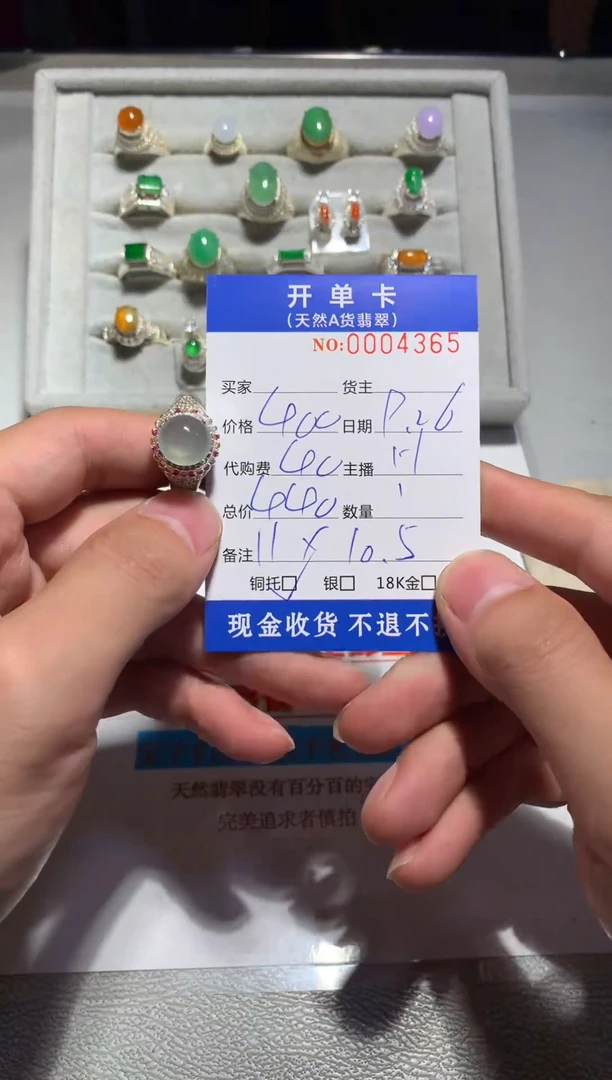 开单卡
（天然A货翡翠）
NO:0004365
买家 货主
价格 400 日期 8.26
代购费 40 主播
总价 440 数量 1
备注 11×10.5
铜托☐ 银☐ 18K金☐
现金收货 不退不
天然翡翠没有百分百的
完美追求者慎拍